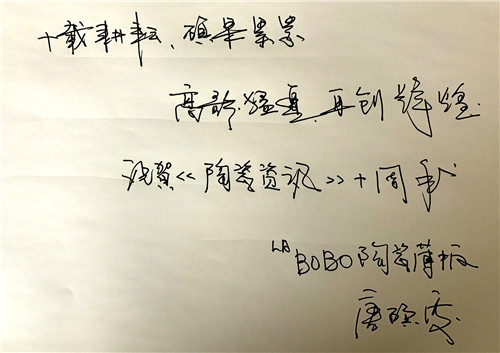 十载耕耘、硕果累累
高歌猛奏,再创辉煌
祝贺《陶瓷资讯》十周年
BOBO陶瓷薄板
唐硕度